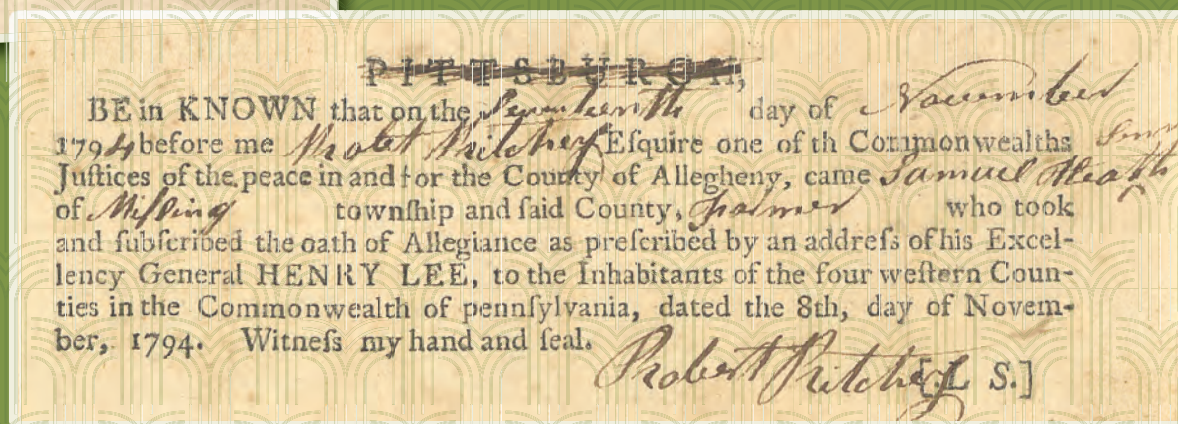 PITTSBURGH,
BE in KNOWN that on the Seventeenth day of November
1794 before me Robert Ritchey Eſquire one of th Commonwealths
Juſtices of the peace in and for the County of Allegheny, came Samuel Heath
of Mifling townſhip and ſaid County, farmer who took
and ſubſcribed the oath of Allegiance as preſcribed by an addreſs of his Excel-
lency General HENRY LEE, to the Inhabitants of the four weſtern Coun-
ties in the Commonwealth of pennſylvania, dated the 8th, day of Novem-
ber, 1794. Witneſs my hand and ſeal.
Robert Ritchey [L S.]